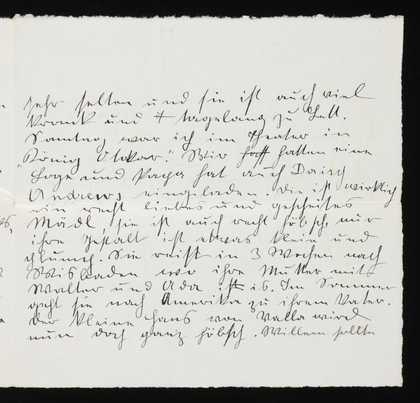 sehr selten und sie ist auch viel
krank und # tagelang zu Bett.
Sonntag war ich im Theater in
"König Ottokar". Wir hatten eine
Loge und Papa hat auch Daisy
Andrews eingeladen. Die ist wirklich
ein recht liebes und gescheites
Mädl, sie ist auch recht hübsch, nur
ihre Gestalt ist etwas klein und
plump. Sie reist in 3 Wochen nach
Wisbaden wo ihre Mutter mit
Walter und Ada ist. Im Sommer
geht sie nach Amerika zu ihrem Vater.
Der kleine Hans von Valla wird
nun doch ganz hübsch. Willem sollte